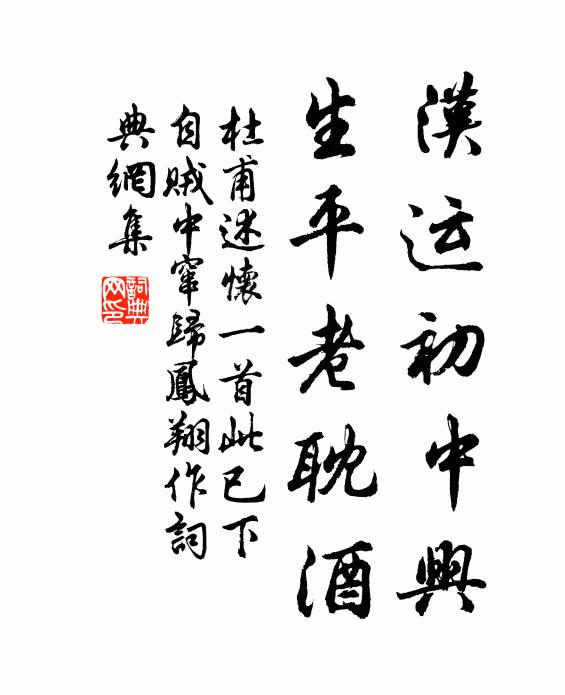 漢运初中興
生平老耽酒
杜甫述懷一首此已下
自贼中窜歸鳳翔作詞
典網集
詞典网印